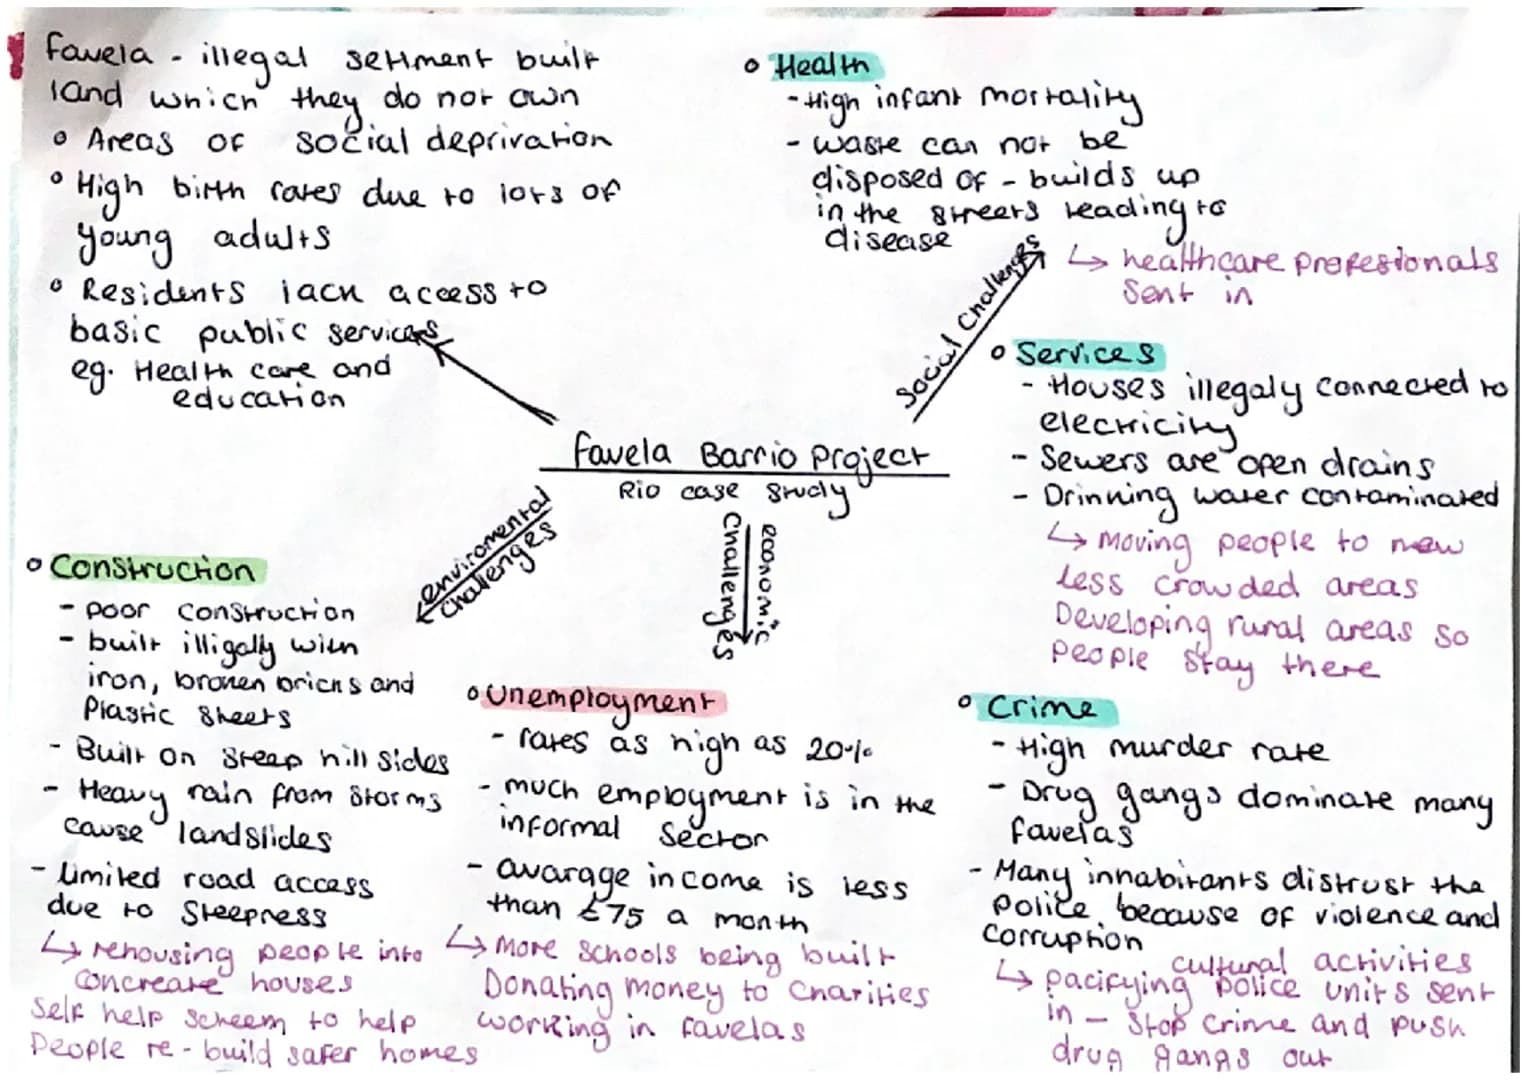 Favela - illegal setlment built
land which they do not own
• Areas of social deprivation
• High birth rates due to lots of
young adults
• Residents lack access to
basic public services
eg. Health care and
education
• Health
- High infant mortality
- waste can not be
disposed of - builds up
in the streets leading to
disease
↳ healthcare profestionals
sent in
Social Challenges
• Services
- Houses illegaly connected to
electricity
- Sewers are open drains
- Drinking water contaminated
↳ Moving people to new
less crowded areas
Developing rural areas so
people stay there
Favela Barrio Project
Rio case study
enviromental
challenges
economic
challenges
• Construction
- poor construction
- built illigally with
iron, broken bricks and
Plastic sheets
- Built on steep hill sides
- Heavy rain from storms
cause landslides
- Limited road access
due to Steepness
↳ rehousing people into
concreate houses
Self help scheem to help
People re-build safer homes
• Unemployment
- rates as high as 20%
- much employment is in the
informal sector
- avarage income is less
than £75 a month
↳ More schools being built
Donating money to charities
working in favelas
• Crime
- High murder rate
- Drug gangs dominate many
favelas
- Many innabitants distrust the
police because of violence and
corruption
cultural activities
↳ pacifying police units sent
in - stop crime and push
drug gangs out